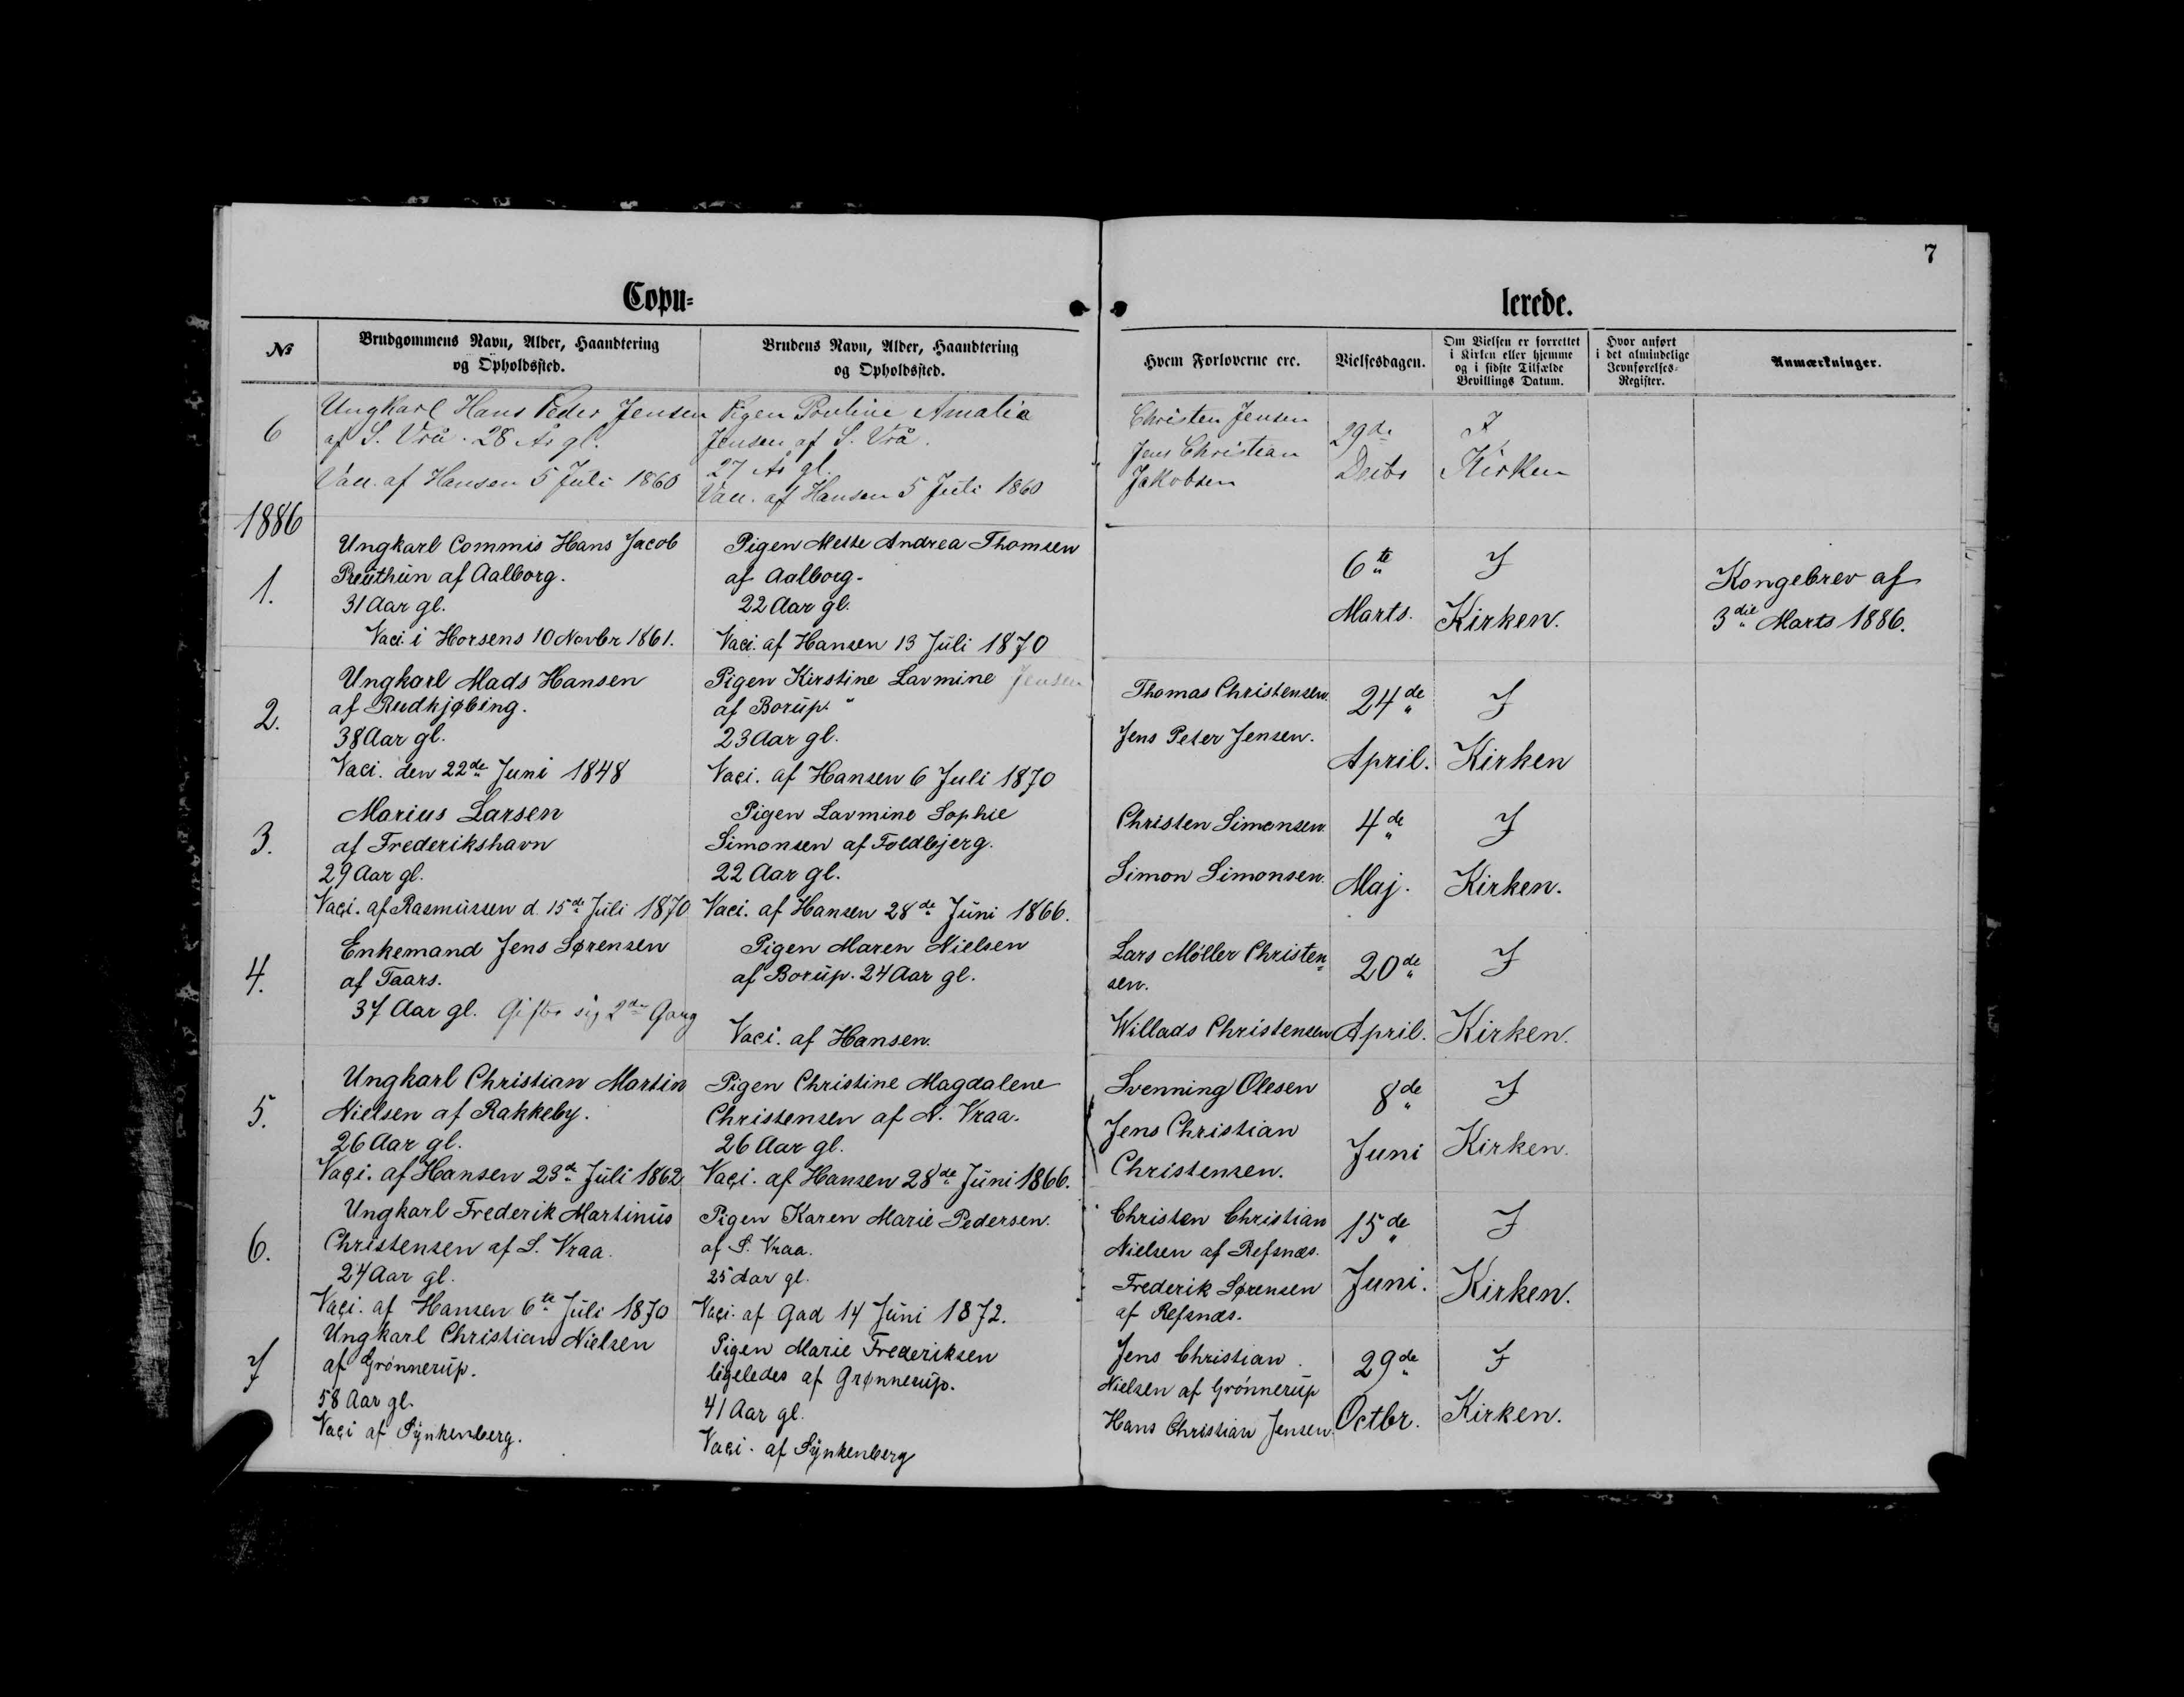 7
Copu=
lerede.
№
Brudgommens Navn, Alder, Haandtering
og Opholdssted.
Brudens Navn, Alder, Haandtering
og Opholdssted.
Hvem Forloverne ere.
Vielsesdagen.
Om Vielsen er forrettet
i Kirken eller hjemme
og i sidste Tilfælde
Bevillings Datum.
Hvor anført
i det almindelige
Jevnførelses-
Register.
Anmærkninger.
6
Ungkarl Hans Peder Jensen
af S. Vrå. 28 År gl.
Vacc. af Hansen 5 Juli 1860
Pigen Pouline Amalie
Jensen af S. Vrå.
27 År gl.
Vacc. af Hansen 5 Juli 1860
Christen Jensen
Jens Christian
Jakobsen
29de
Decbr
I
Kirken
1886
1.
Ungkarl Commis Hans Jacob
Preuthun af Aalborg.
31 Aar gl.
Vaci. i Horsens 10 Novbr 1861.
Pigen Mette Andrea Thomsen
af Aalborg.
22 Aar gl.
Vaci. af Hansen 13 Juli 1870
6te
Marts.
I
Kirken.
Kongebrev af
3die Marts 1886.
2.
Ungkarl Mads Hansen
af Rudkjøbing.
38 Aar gl.
Vaci. den 22de Juni 1848
Pigen Kirstine Lavmine Jensen
af Borup.
23 Aar gl.
Vaci. af Hansen 6 Juli 1870
Thomas Christensen.
Jens Peter Jensen.
24de
April.
I
Kirken
3.
Marius Larsen
af Frederikshavn
29 Aar gl.
Vaci. af Rasmussen d. 15de Juli 1870
Pigen Lavmine Sophie
Simonsen af Foldbjerg.
22 Aar gl.
Vaci. af Hansen 28de Juni 1866.
Christen Simonsen.
Simon Simonsen.
4de
Maj.
I
Kirken.
4.
Enkemand Jens Sørensen
af Taars.
37 Aar gl. Gifter sig 2den Gang
Pigen Maren Nielsen
af Borup. 24 Aar gl.
Vaci. af Hansen.
Lars Møller Christen=
sen.
Willads Christensen
20de
April.
I
Kirken.
5.
Ungkarl Christian Martin
Nielsen af Rakkeby.
26 Aar gl.
Vaci. af Hansen 23de Juli 1862
Pigen Christine Magdalene
Christensen af N. Vraa.
26 Aar gl.
Vaci. af Hansen 28de Juni 1866.
Svenning Olesen
Jens Christian
Christensen.
8de
Juni
I
Kirken.
6.
Ungkarl Frederik Martinus
Christensen af S. Vraa.
24 Aar gl.
Vaci. af Hansen 6te Juli 1870
Pigen Karen Marie Pedersen.
af S. Vraa.
25 Aar gl.
Vaci. af Gad 14 Juni 1872.
Christen Christian
Nielsen af Refsnæs.
Frederik Sørensen
af Refsnæs.
15de
Juni.
I
Kirken.
7
Ungkarl Christian Nielsen
af Grønnerup.
58 Aar gl.
Vaci af Synkenberg.
Pigen Marie Frederiksen
ligeledes af Grønnerup.
41 Aar gl.
Vaci. af Synkenberg
Jens Christian
Nielsen af Grønnerup
Hans Christian Jensen.
29de
Octbr.
I
Kirken.